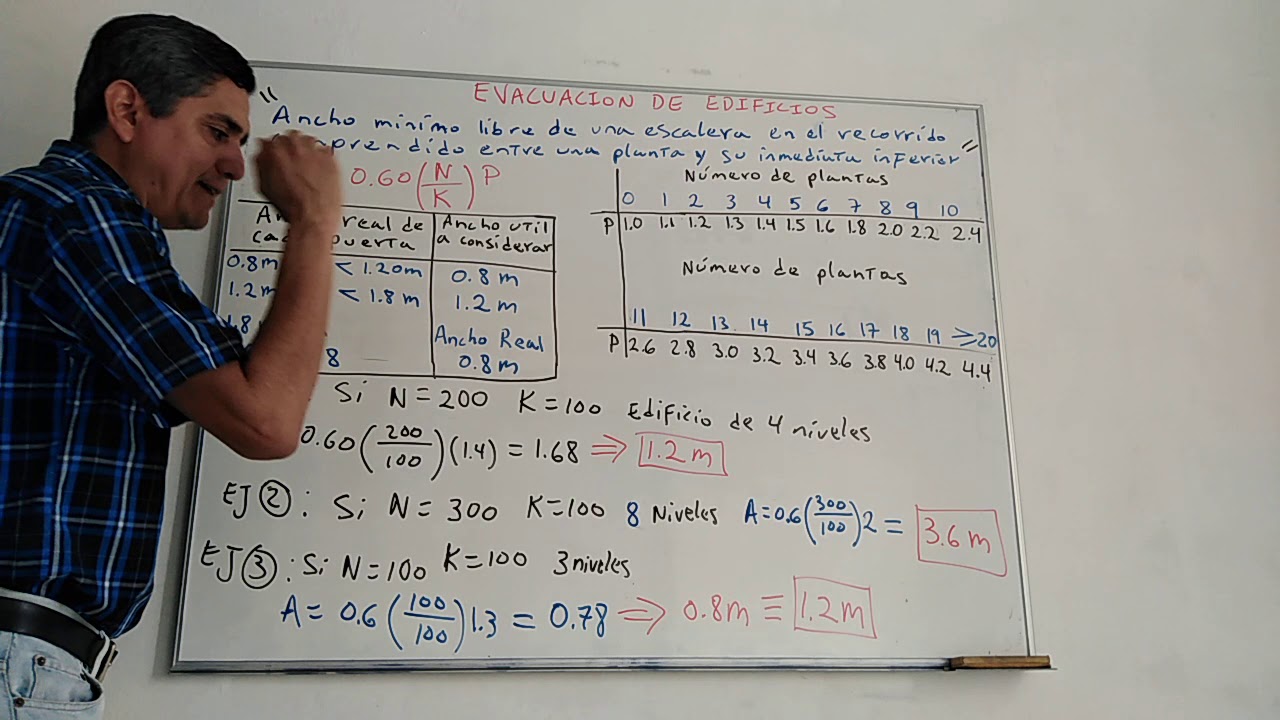 EVACUACION DE EDIFICIOS
"Ancho minimo libre de una escalera en el recorrido
entre una planta y su inmediata inferior"
0.60(N/K)P
real de
Ancho util
a considerar
0.8m < 1.20m 0.8 m
1.2m < 1.8 m 1.2 m
Ancho Real
8 0.8 m
Número de plantas
0 1 2 3 4 5 6 7 8 9 10
P 1.0 1.1 1.2 1.3 1.4 1.5 1.6 1.8 2.0 2.2 2.4
Número de plantas
11 12 13 14 15 16 17 18 19 ≥20
P 2.6 2.8 3.0 3.2 3.4 3.6 3.8 4.0 4.2 4.4
Si N=200 K=100 Edificio de 4 niveles
0.60(200/100)(1.4) = 1.68 ⇒ 1.2 m
EJ②: Si N=300 K=100 8 Niveles A=0.6(300/100)2 = 3.6 m
EJ③: Si N=100 K=100 3 niveles
A= 0.6(100/100)1.3 = 0.78 ⇒ 0.8m ≡ 1.2m